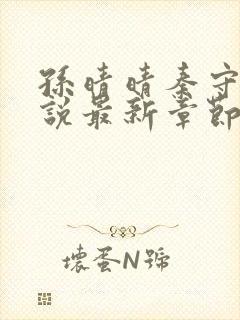 孫晴晴秦守
說最新章節
壞蛋N號